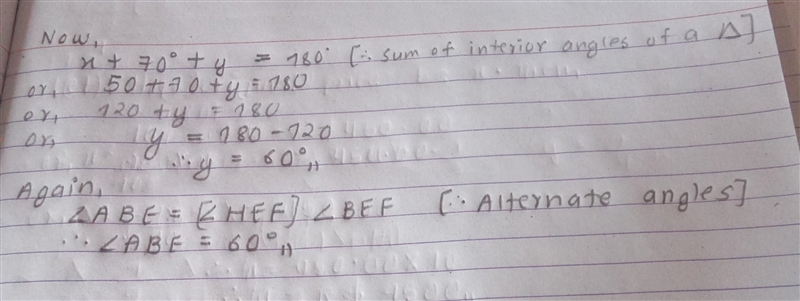 Now,
x + 70° + y = 180° [∵ sum of interior angles of a Δ]
or, 50 + 70 + y = 180
or, 120 + y = 180
or, y = 180 - 120
∴ y = 60°,,
Again,
∠ABE = [∠HEF] ∠BEF [∵ Alternate angles]
∴ ∠ABE = 60°,,